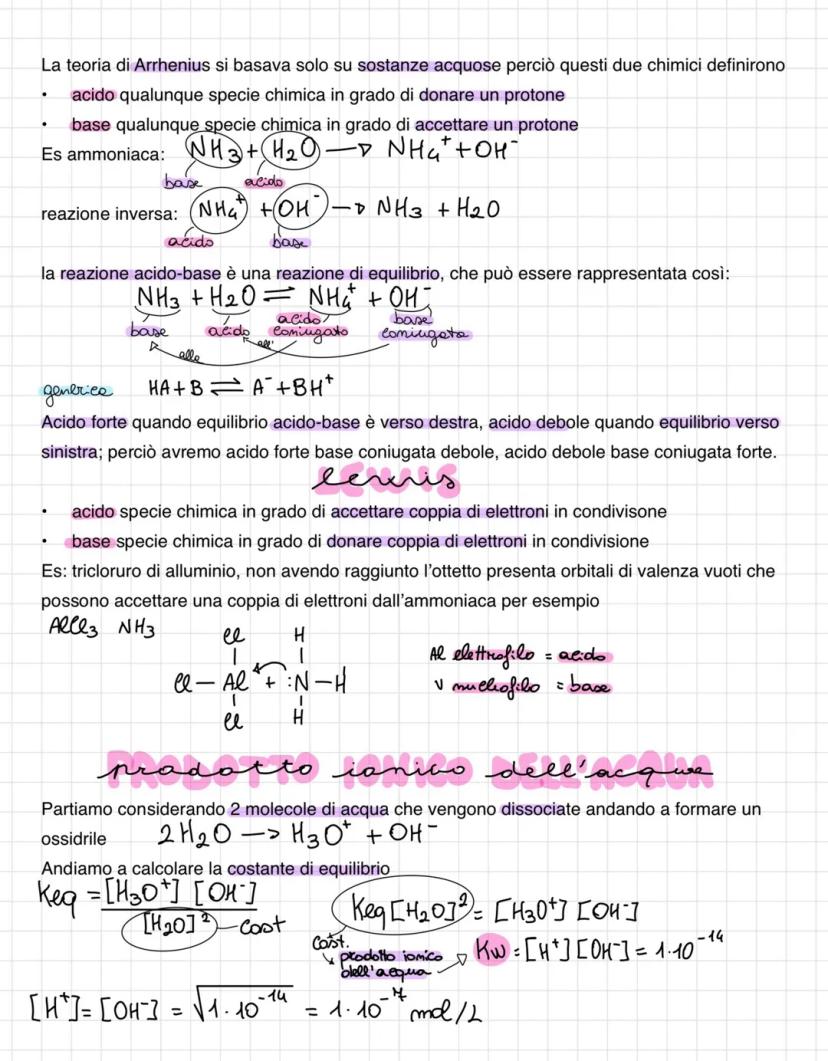 La teoria di Arrhenius si basava solo su sostanze acquose perciò questi due chimici definirono
• acido qualunque specie chimica in grado di donare un protone
• base qualunque specie chimica in grado di accettare un protone
Es ammoniaca: NH3 + H2O → NH4⁺ + OH⁻
base acido
reazione inversa: NH4⁺ + OH⁻ → NH3 + H2O
acido base
la reazione acido-base è una reazione di equilibrio, che può essere rappresentata così:
NH3 + H2O ⇌ NH4⁺ + OH⁻
base acido acido coniugato base coniugata
alla all'
generica HA + B ⇌ A⁻ + BH⁺
Acido forte quando equilibrio acido-base è verso destra, acido debole quando equilibrio verso
sinistra; perciò avremo acido forte base coniugata debole, acido debole base coniugata forte.
lewis
• acido specie chimica in grado di accettare coppia di elettroni in condivisone
• base specie chimica in grado di donare coppia di elettroni in condivisione
Es: tricloruro di alluminio, non avendo raggiunto l'ottetto presenta orbitali di valenza vuoti che
possono accettare una coppia di elettroni dall'ammoniaca per esempio
AlCl3 NH3
Cl H
Cl — Al + :N — H
Cl H
Al elettrofilo = acido
N nucleofilo = base
prodotto ionico dell'acqua
Partiamo considerando 2 molecole di acqua che vengono dissociate andando a formare un
ossidrile 2H2O —> H3O⁺ + OH⁻
Andiamo a calcolare la costante di equilibrio
Keq = [H3O⁺] [OH⁻]
[H2O]² cost
Keq [H2O]² = [H3O⁺] [OH⁻]
cost.
prodotto ionico
dell'acqua
Kw = [H⁺] [OH⁻] = 1·10⁻¹⁴
[H⁺] = [OH⁻] = √1·10⁻¹⁴ = 1·10⁻⁷ mol/L